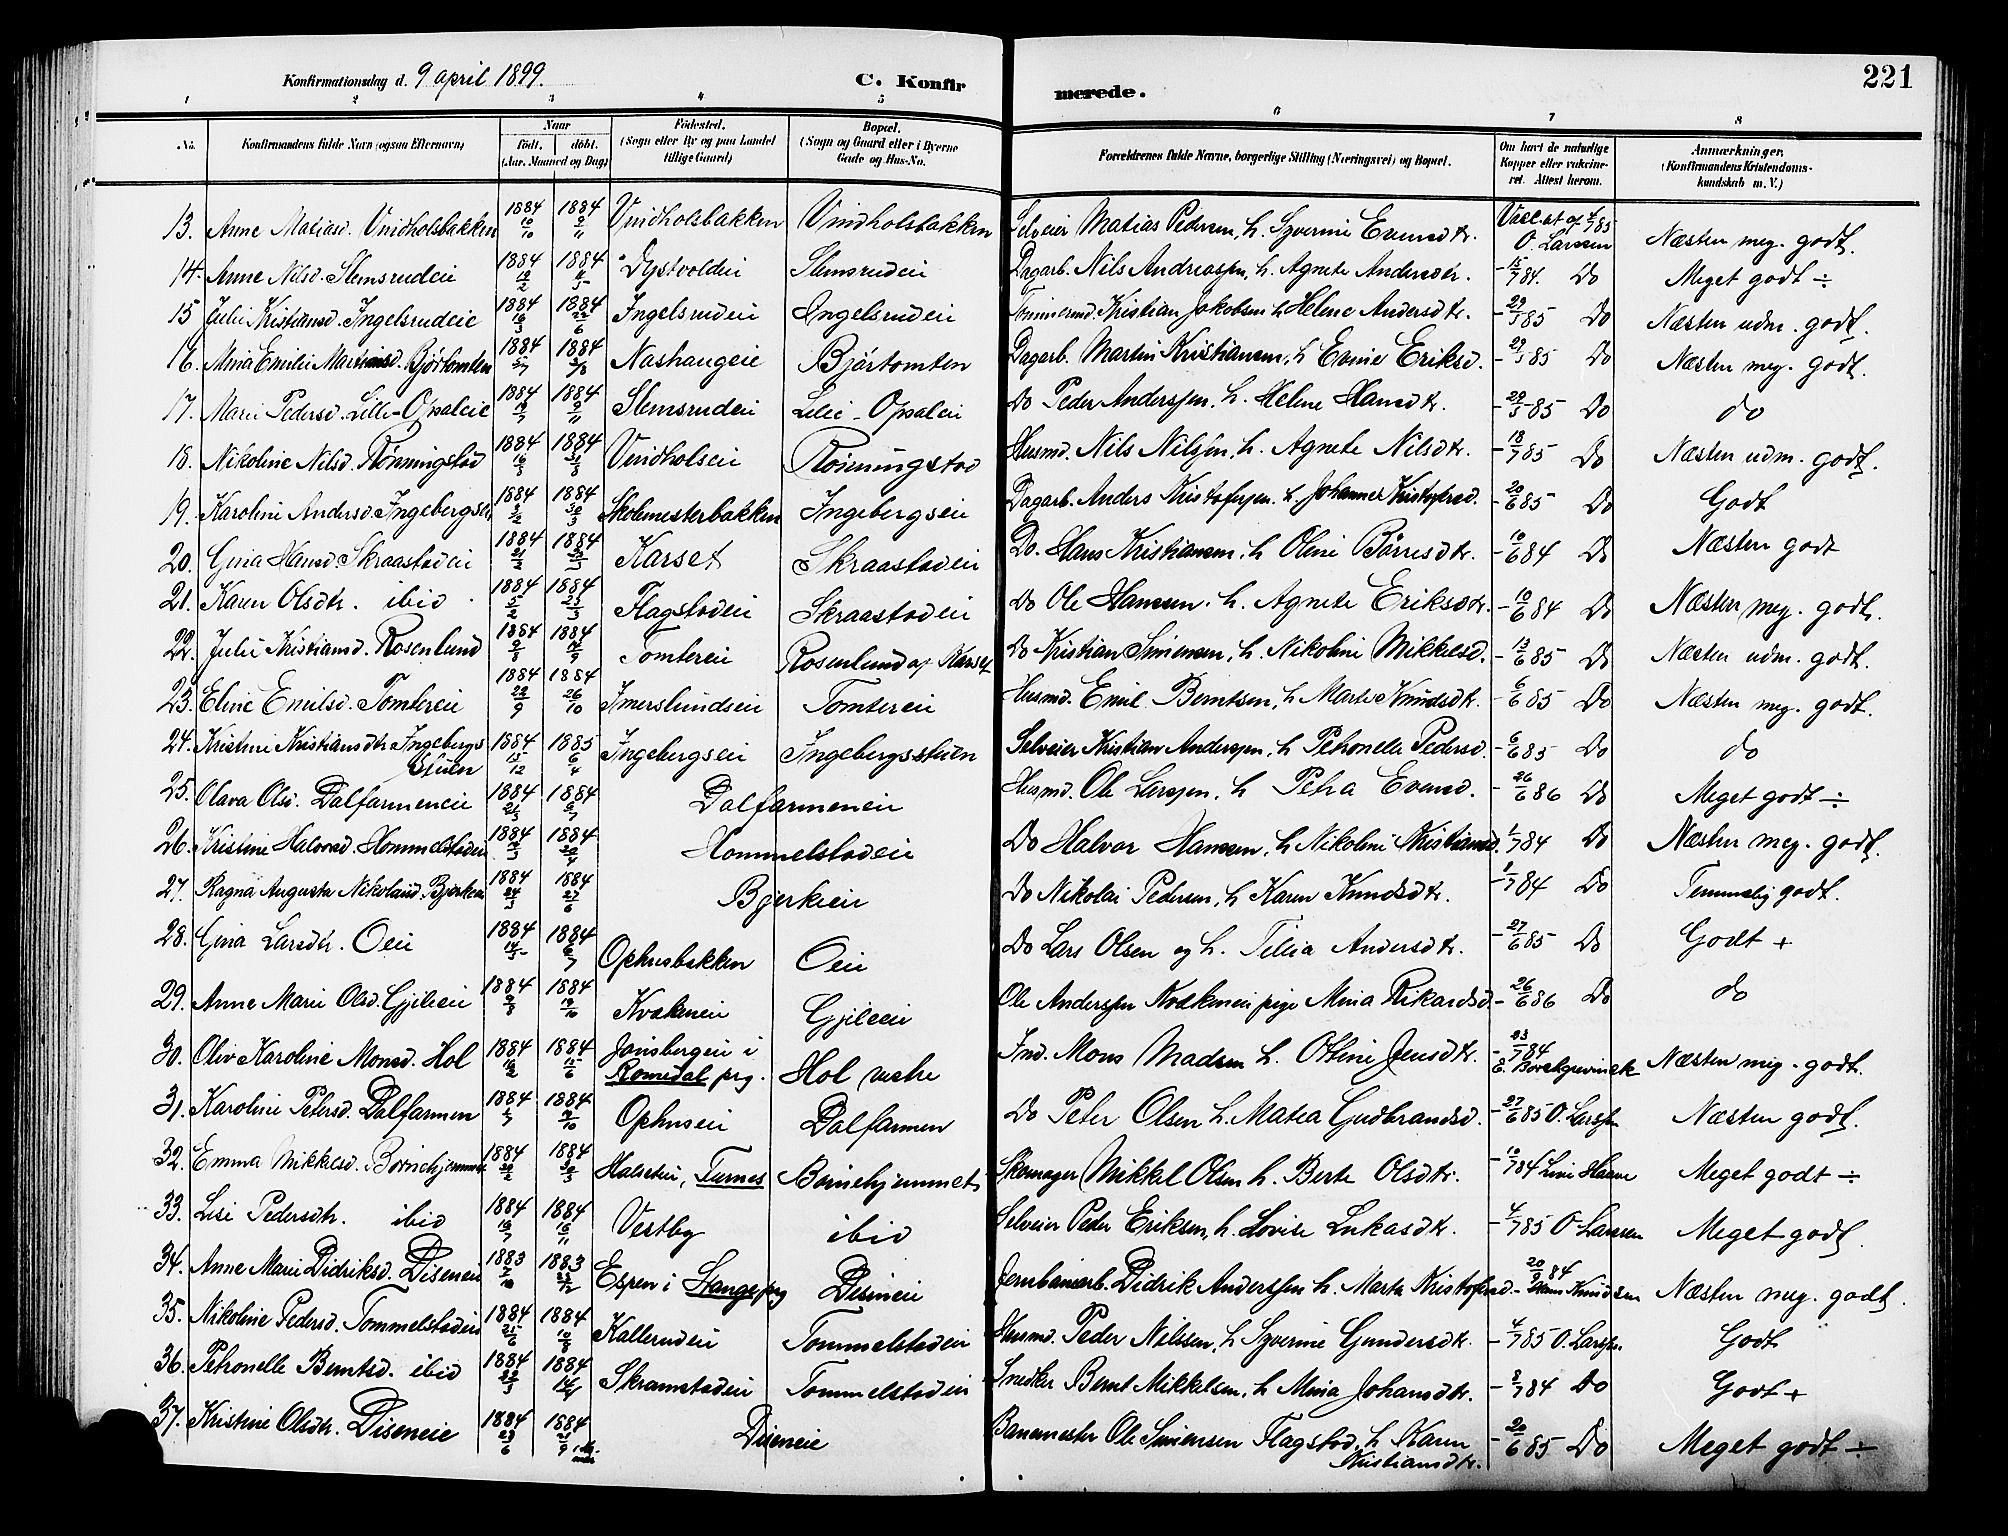 Konfirmationsdag d. 9 april 1899.
C. Konfirmerede.
221
1 2 3 4 5 6 7 8
No. Konfirmandens fulde Navn (ogsaa Efternavn) Naar født. døbt. (Aar, Maaned og Dag) Fødested. (Sogn eller By og paa Landet tillige Gaard) Bopæl. (Sogn og Gaard eller i Byerne Gade og Hus-No. Forældrenes fulde Navne, borgerlige Stilling (Næringsvei) og Bopæl. Om havt de naturlige Kopper eller vakcineret. Attest herom. Anmærkninger. (Konfirmandens Kristendomskundskab m. V.)
13. Anne Matiasd. Vindholsbakken 1884 10/10 1884 9/11 Vindholsbakken Vindholsbakken Selveier Matias Pedersen, h. Syverine Evensdtr. O. Larsen Næsten meg. godt.
14. Anne Nilsd. Slemsrudeie 1884 1884 Dystvoldeie Slemsrudeie Dagarb. Nils Andreassen, h. Agnete Andersdtr. - 15/7 84. Do Meget godt ÷
15 Julie Kristiansd. Ingelsrudeie 1884 1884 22/6 Ingelsrudeie Ingelsrudeie Tømmermd. Kristian Jakobsen h Helene Andersdtr. - 29/5 85 Do Næsten udm. godt.
16. Mina Emilie Martinsd. Bjørtomten 1884 1884 Nashaugeie Bjørtomten Dagarb. Martin Kristiansen, h Evine Eriksd. - 29/5 85 Do Næsten meg. godt.
17. Marie Pedersd. Lille-Opsaleie 1884 1884 9/11 Slemsrudeie Lille-Opsaleie Do Peder Anderssen, h. Helene Hansdtr. - 29/5 85 Do do
18. Nikoline Nilsd. Rønningstad 1884 1884 Vindholseie Rønningstad Husmd. Nils Nilssen, h. Agnete Nilsdtr. - 18/7 85 Do Næsten udm. godt.
19. Karoline Andersd. Ingebergseie 1884 1884 30/3 Skolmesterbakken Ingebergseie Dagarb. Anders Kristofersen, h. Johanne Kristofersd. - 20/6 85 Do Godt
20. Gina Hansd. Skraastadeie 1884 21/2 1884 Karset Skraastadeie Do. Hans Kristiansen, h Oline Børresdtr. - 10/6 84 Do Næsten godt
21. Karen Olsdtr. ibid 1884 5/2 1884 23/3 Flagstadeie Skraastadeie Do Ole Hansen, h. Agnete Eriksdtr. - 10/6 84 Do Næsten meg. godt.
22. Julie Kristiansd. Rosenlund 1884 9/8 1884 14/9 Tomtereie Rosenlund af Karset Do Kristian Simensen, h. Nikoline Mikkelsd. - 13/6 85 Do Næsten udm. godt.
23. Eline Emilsd. Tomtereie 1884 22/9 1884 26/10 Imerslundseie Tomtereie Husmd. Emil Berntsen, h Marte Knudsdtr. - 6/6 85 Do Næsten meg. godt.
24. Kristine Kristiansdtr. Ingebergsstuen 1884 15/12 1885 6/4 Ingebergseie Ingebergsstuen Selveier Kristian Anderssen, h Petronelle Pedersd. - 6/6 85 Do do
25. Olava Olsd. Dalfarmeneie 1884 1884 Dalfarmeneie Husmd. Ole Larssen, h Petra Evensd. - 26/6 86 Do Meget godt ÷
26. Kristine Halvorsd. Hommelstadeie 1884 1884 Hommelstadeie Do Halvor Hansen, h Nikoline Kristiansd. 1/7 84 Do Næsten meg. godt.
27. Ragna Augusta Nikolaisd. Bjerkeie 1884 24/3 1884 27/6 Bjerkeie Do Nikolai Pedersen, h Karen Knudsdtr. - 1/7 84 Do Temmelig godt.
28. Gina Larsdtr. Oeie 1884 14/5 1884 6/7 Ophusbakken Oeie Do Lars Olsen og h. Tilia Andersdtr. - 27/6 85 Do Godt +
29. Anne Marie Olsd. Gjileeie 1884 9/8 1884 19/10 Kvækneeie Gjileeie Ole Anderssen Kvækneeie pige Mina Rikardsd. - 26/6 86 Do do
30. Oliv Karoline Monsd. Hol 1884 1884 15/6 Jønsbergeie i Romedal prg. Hol vestre Ind. Mons Madsen h. Otline Jensdtr. - 23/7 84 E. Borchgrevinck Næsten meg. godt.
31. Karoline Petersd. Dalfarmen 1884 1884 Ophuseie Dalfarmen Do Peter Olsen h. Matea Gudbrandsd. - 27/6 85 O. Larssen Næsten godt.
32. Emma Mikkelsd. Børnehjemmet 1884 29/2 1884 30/3 Halseteie, Furnes Børnehjemmet Skomager Mikkel Olsen h. Berte Olsdtr. - 10/7 84 Meget godt ÷
33. Lise Pedersdtr. ibid 1884 19/7 1884 16/11 Vestby ibid Selveier Peder Eriksen, h. Lovise Lukasdtr. - 4/7 85 O Larssen Meget godt.
34. Anne Marie Didriksd. Diseneie 1883 7/10 1883 Espen i Stange prg Diseneie Jernbanearb. Didrik Anderssen h. Marte Kristofersd. - 20/9 84 Knudsen Næsten meg. godt.
35. Nikoline Pedersd. Tommelstadeie 1884 25/6 1884 10/8 Kallerudeie Tommelstadeie Husmd. Peder Nilssen, h Syverine Gundersdtr. - 4/7 85 O. Larssen Godt
36. Petronelle Berntsd. ibid 1884 22/3 1884 Skramstadeie Tommelstadeie Snedker Bernt Mikkelsen, h Mina Johansdtr. - 8/7 84 Do Godt +
37. Kristine Olsdtr. Diseneie 1884 23/6 1884 21/9 Diseneie Banemester Ole Simensen Flagstad, h Karen Kristiansdtr. - 20/6 85 Do Meget godt ÷